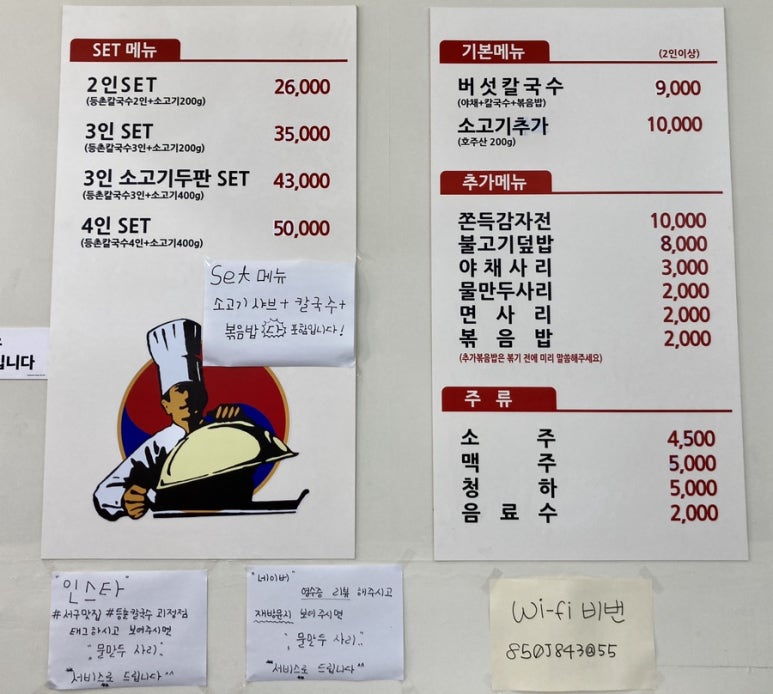 SET 메뉴
2인SET 26,000
(등촌칼국수2인+소고기200g)
3인 SET 35,000
(등촌칼국수3인+소고기200g)
3인 소고기두판 SET 43,000
(등촌칼국수3인+소고기400g)
4인 SET 50,000
(등촌칼국수4인+소고기400g)
Set 메뉴
소고기 샤브+ 칼국수+
볶음밥 다 포함입니다!
입니다
기본메뉴 (2인이상)
버섯칼국수 9,000
(야채+칼국수+볶음밥)
소고기추가 10,000
(호주산 200g)
추가메뉴
쫀득감자전 10,000
불고기덮밥 8,000
야채사리 3,000
물만두사리 2,000
면사리 2,000
볶음밥 2,000
(추가볶음밥은 볶기 전에 미리 말씀해주세요)
주류
소주 4,500
맥주 5,000
청하 5,000
음료수 2,000
"인스타"
#서구맛집 #등촌칼국수 괴정점
태그하시고 보여주시면
"물만두 사리"
"서비스로 드립니다^^
"네이버"
영수증 리뷰 해주시고
재방문시 보여주시면
"물만두 사리"
"서비스로 드립니다^^
Wi-fi 비번
850J843@55